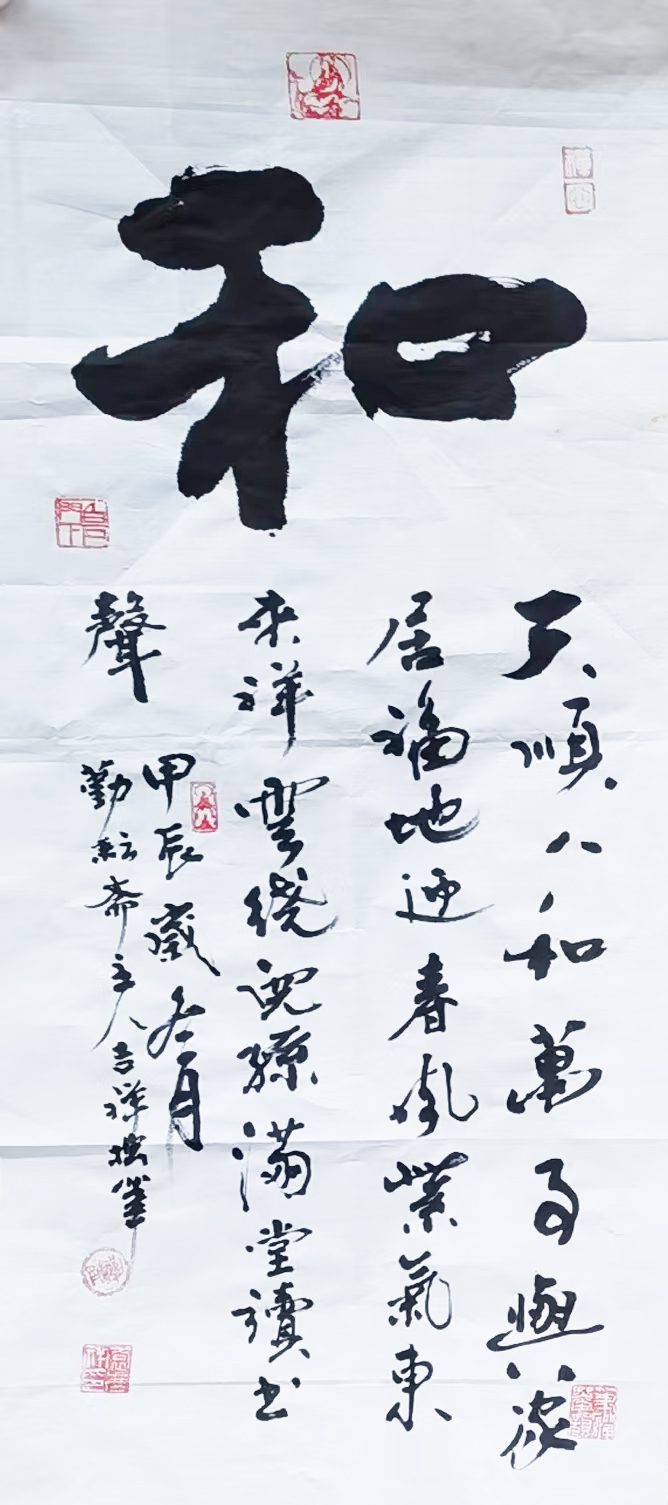 和
天順人和萬事興家
居福地迎春風紫氣東
來祥雲繞兒孫滿堂讀書
聲
甲辰歲冬月
勤耘斋主人吉祥